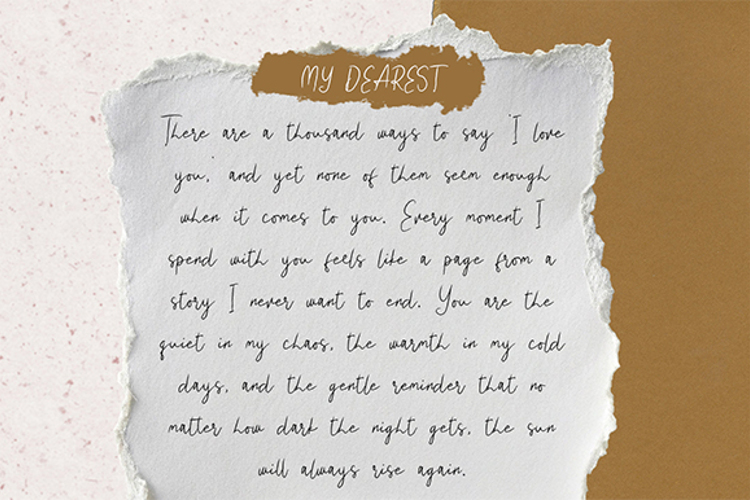 MY DEAREST
There are a thousand ways to say 'I love
you,' and yet none of them seem enough
when it comes to you. Every moment I
spend with you feels like a page from a
story I never want to end. You are the
quiet in my chaos, the warmth in my cold
days, and the gentle reminder that no
matter how dark the night gets, the sun
will always rise again.